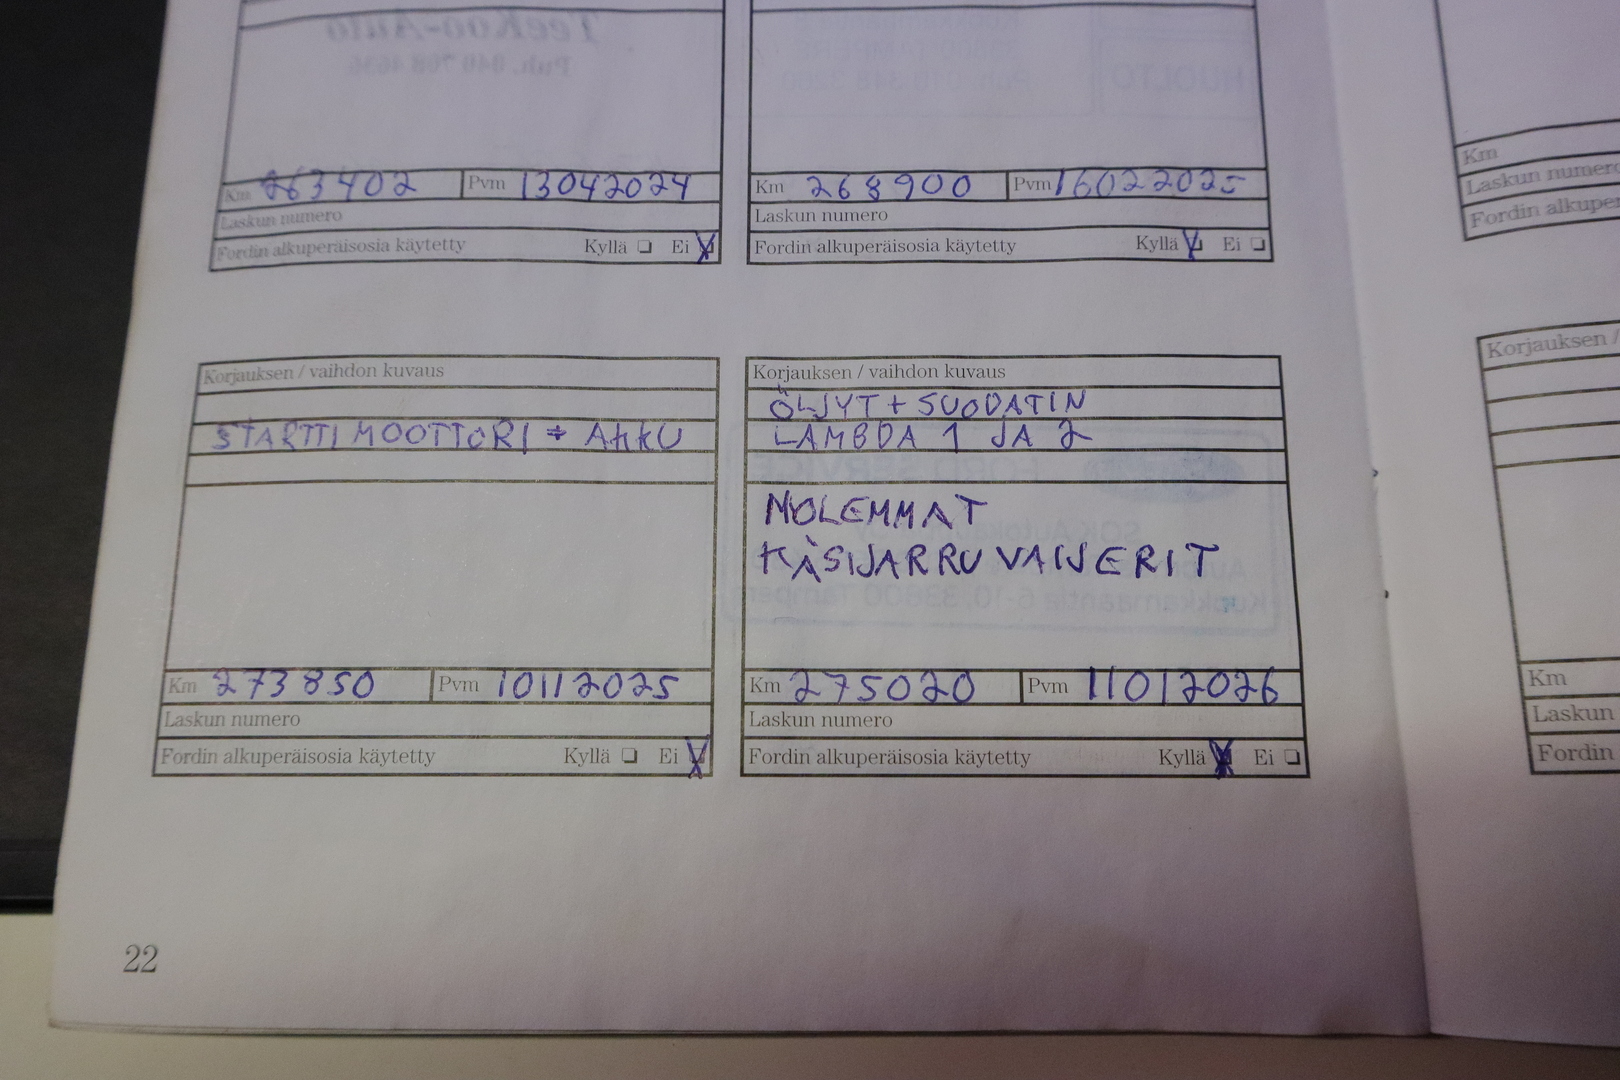 Km 263402 Pvm 13042024
Laskun numero
Fordin alkuperäisosia käytetty Kyllä Ei
Km 268900 Pvm 16022025
Laskun numero
Fordin alkuperäisosia käytetty Kyllä Ei
Km
Laskun numero
Korjauksen / vaihdon kuvaus
STARTTIMOOTTORI + AKKU
Km 273850 Pvm 10112025
Laskun numero
Fordin alkuperäisosia käytetty Kyllä Ei
Korjauksen / vaihdon kuvaus
ÖLJYT + SUODATIN
LAMBDA 1 JA 2
MOLEMMAT
KÄSIJARRUVAIJERIT
Km 275020 Pvm 11012026
Laskun numero
Fordin alkuperäisosia käytetty Kyllä Ei
Korjauksen /
Km
Laskun
Fordin
22